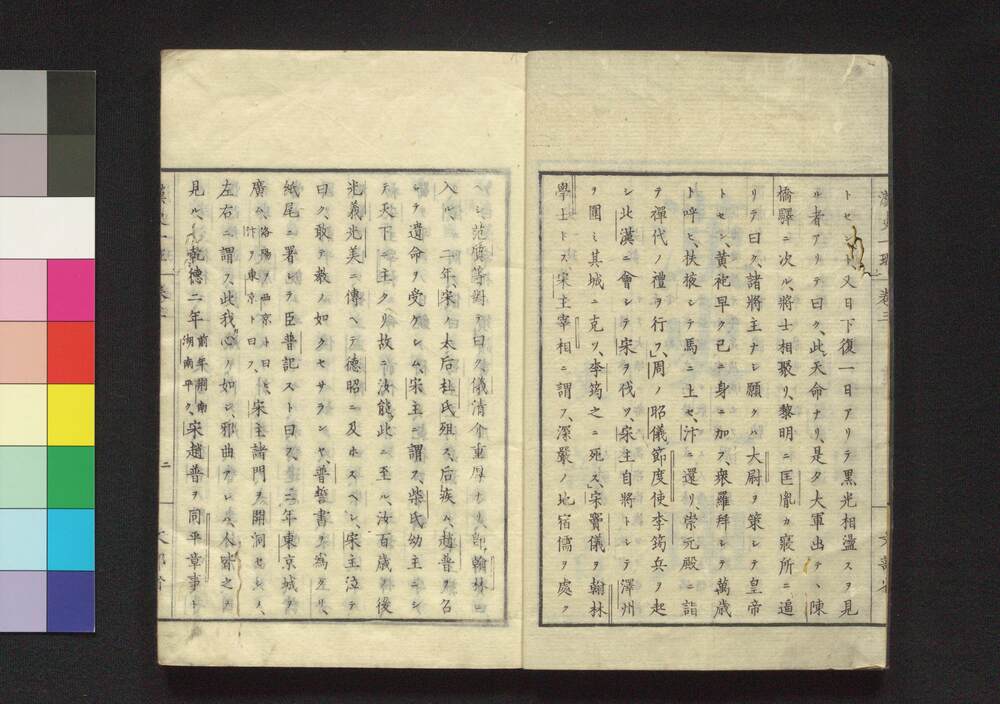 トセシニ又日下復一日アリテ黒光相盪スヲ見
ル者アリテ曰ク、此天命ナリ、是夕大軍出テヽ陳
橋驛ニ次ル、將士相聚リ、黎明ニ匡胤カ寢所ニ逼
リテ曰ク、諸將主ナシ願クハ大尉ヲ策シテ皇帝
トセン、黄袍早ク已ニ身ニ加フ、衆羅拜シテ萬歳
ト呼ヒ、扶掖シテ馬ニ上セ、汴ニ還リ、崇元殿ニ詣
テ禪代ノ禮ヲ行フ、周ノ昭儀節度使李筠兵ヲ起
シ北漢ニ會シテ宋ヲ伐ツ、宋主自將トシテ澤州
ヲ圍ミ其城ニ克ツ、李筠之ニ死ス、宋竇儀ヲ翰林
學士トス宋主宰相ニ謂フ、深嚴ノ地宿儒ヲ處ク
ヘシ范質等對テ曰ク儀清介重厚ナリ、即翰林ニ
入ル、二年、宋ノ太后杜氏殂ス、后疾ム、趙普ヲ召
シテ遺命ヲ受ケシム、宋主ニ謂フ、柴氏幼主ニシ
テ天下ニ主タリ故ニ汝能此ニ至ル、汝百歳ノ後
光義光美ニ傳ヘテ德昭ニ及ホスヘシ、宋主泣テ
曰ク、敢テ教ノ如クセサランヤ、普誓書ヲ爲クリ、
紙尾ニ署シテ臣普記スト曰フ、三年東京城ヲ
廣ム、洛陽ヲ西京ト曰ヒ汴ヲ東京ト曰フ、宋主諸門ヲ開洞セシメ、
左右ニ謂フ、此我心ノ如シ、邪曲アレハ、人皆之ヲ
見ル、乾德二年前年荊南湖南平ク、宋趙普ヲ同平章事ト